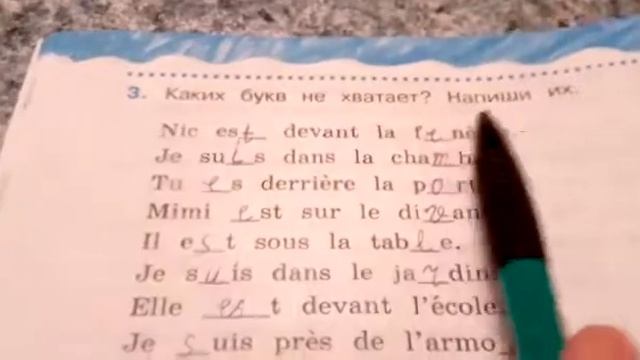 3. Каких букв не хватает? Напиши их.
Nic est devant la
Je suis dans la
Tu es derrière la
Mimi est sur le divan
Il est sous la table.
Je suis dans le jardin
Elle est devant l'école
Je suis près de l'armo